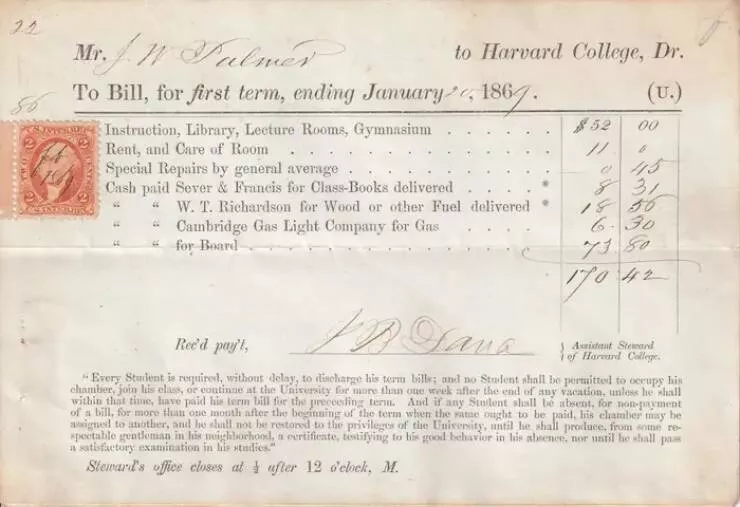 22
Mr. J W Palmer to Harvard College, Dr.
To Bill, for first term, ending January 20, 1869. (U.)
86
U.S. INTER. REV.
2 2
TWO CENTS
2 2
U.S. INTER. REV.
Instruction, Library, Lecture Rooms, Gymnasium . . . . . . $52 00
Rent, and Care of Room . . . . . . . . . . . . . . 11 0
Special Repairs by general average . . . . . . . . . . . 0 45
Cash paid Sever & Francis for Class-Books delivered . . . . * 8 31
“ “ W. T. Richardson for Wood or other Fuel delivered * 18 56
“ “ Cambridge Gas Light Company for Gas . . . . 6. 30
“ “ for Board . . . . . . . . . . . . . . 73 80
170 42
Rec'd pay't, J B Dana } Assistant Steward
} of Harvard College.
“Every Student is required, without delay, to discharge his term bills; and no Student shall be permitted to occupy his
chamber, join his class, or continue at the University for more than one week after the end of any vacation, unless he shall
within that time, have paid his term bill for the preceeding term. And if any Student shall be absent, for non-payment
of a bill, for more than one month after the beginning of the term when the same ought to be paid, his chamber may be
assigned to another, and he shall not be restored to the privileges of the University, until he shall produce, from some re-
spectable gentleman in his neighborhood, a certificate, testifying to his good behavior in his absence, nor until he shall pass
a satisfactory examination in his studies.”
Steward's office closes at ½ after 12 o'clock, M.